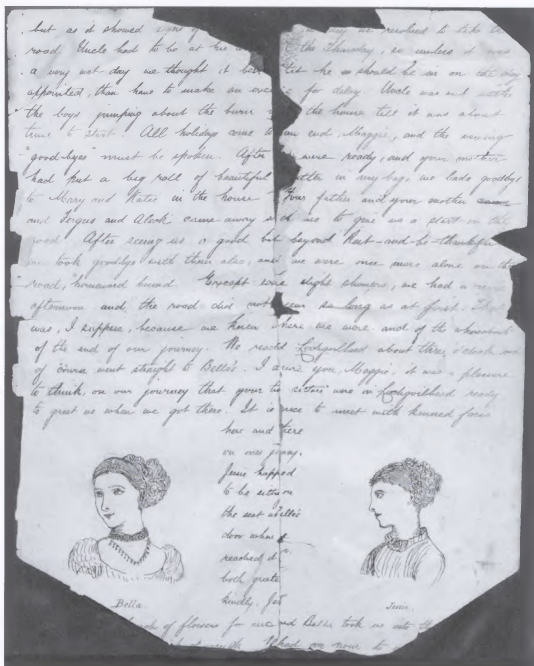 but as it showed signs of day we resolved to take the
road. Uncle had to be at his the Thursday, so unless it was
a very wet day we thought it bet he should be in on the day
appointed, than have to make an exc for delay. Uncle was out with
the boys jumping about the burn the house till it was about
time to start. All holidays come to an end, Maggie, and the
"good-byes" must be spoken. After were ready, and your mother
had put a big roll of beautiful butter in my bag, we bade goodbye
to Mary and Katie in the house Your father and your mother
and Fergus and Aleck came away us to give us a start on the
road. After seeing us a good bit beyond Rest-and-be-thankful
took goodbye with them also, and we were once more alone on the
road, homeward bound. Except some slight showers, we had a
afternoon and the road did not seem so long as at first. This
was, I suppose, because we knew where we were and of the whereabouts
of the end of our journey. We reached Lochgoilhead about three o'clock and
of course went straight to Bella's. I assure you, Maggie, it was a pleasure
to think, on our journey that your two sisters were in Lochgoilhead ready
to greet us when we got there. It is nice to meet with kindred faces
here and there
on ones journey.
Jessie happed
to be sitting on
the seat at Bella's
door when I
reached it
both greeted
kindly. Jes
Bella
Jessie.
bunch of flowers for me and Bella took us into the
had on now to